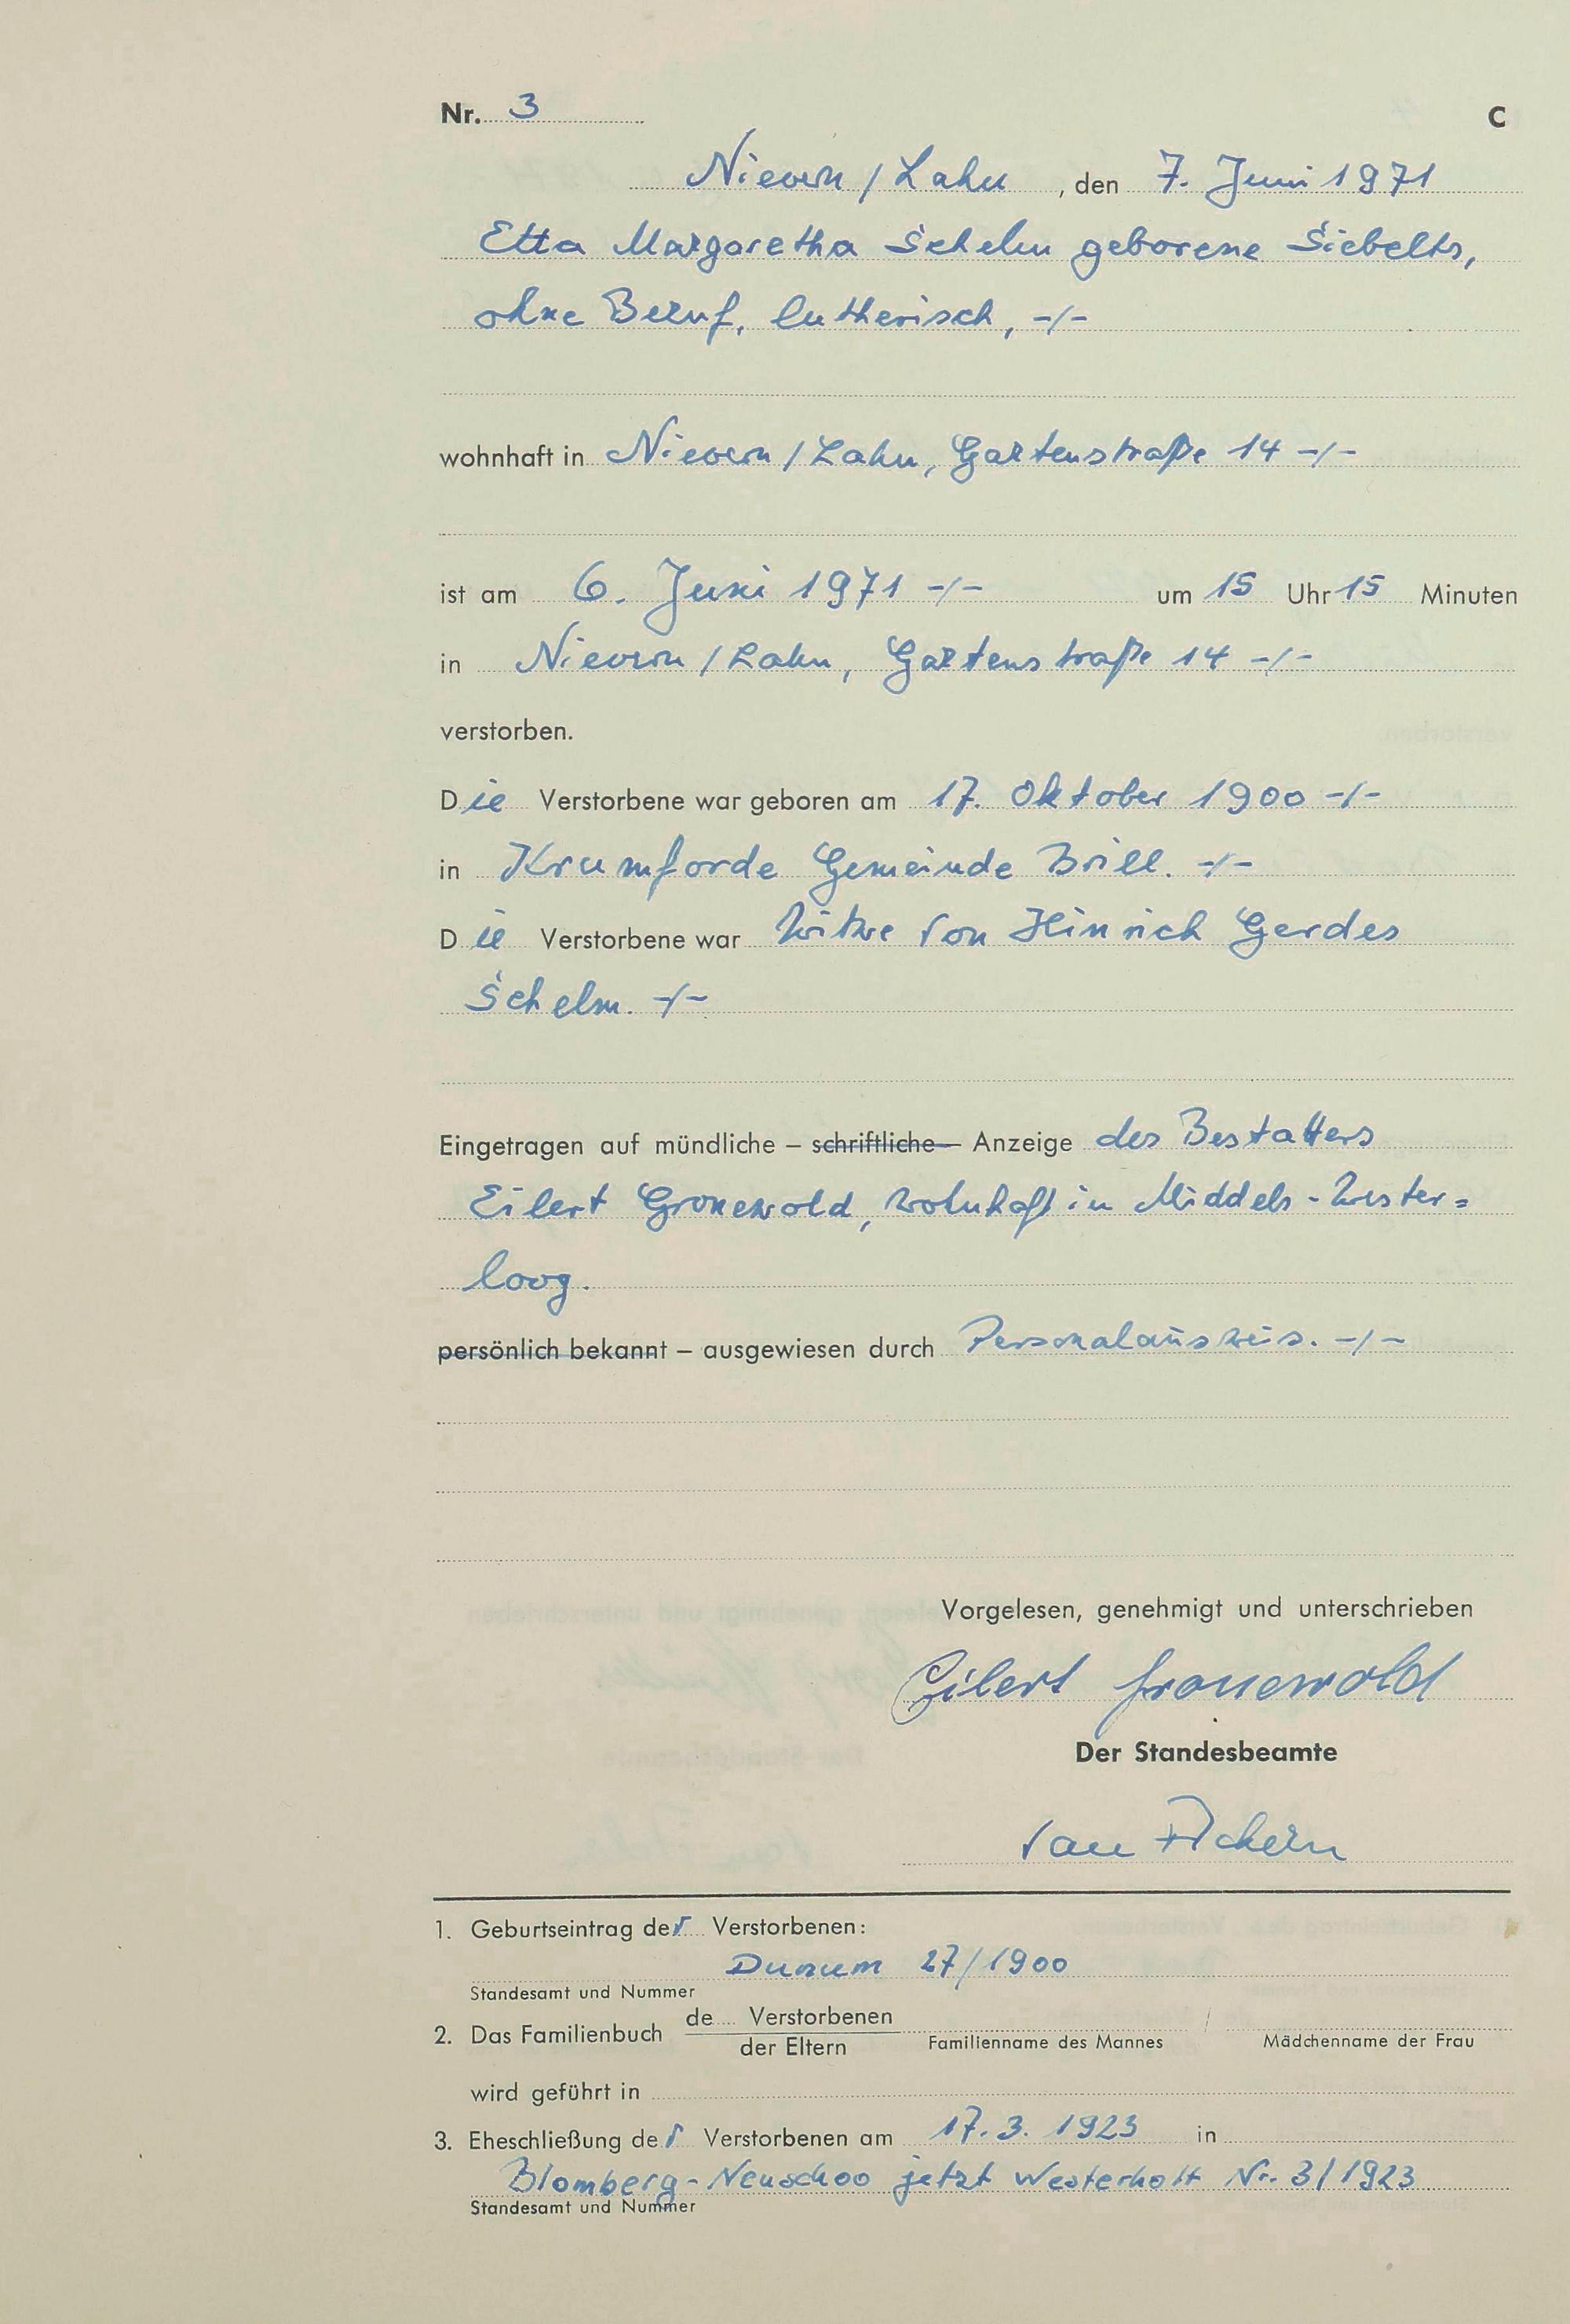 Nr. 3 C
Nievern / Lahn, den 7. Juni 1971
Etta Margaretha Schelm geborene Siebelts,
ohne Beruf, lutherisch, -/-
wohnhaft in Nievern / Lahn, Gartenstraße 14 -/-
ist am 6. Juni 1971 -/- um 15 Uhr 15 Minuten
in Nievern / Lahn, Gartenstraße 14 -/-
verstorben.
Die Verstorbene war geboren am 17. Oktober 1900 -/-
in Krumforde Gemeinde Brill. -/-
Die Verstorbene war Witwe von Hinrich Gerdes
Schelm. -/-
Eingetragen auf mündliche – schriftliche – Anzeige des Bestatters
Eilert Gronewold, wohnhaft in Middels-Wester=
loog.
persönlich bekannt – ausgewiesen durch Personalausweis. -/-
Vorgelesen, genehmigt und unterschrieben
Eilert Gronewold
Der Standesbeamte
van
1. Geburtseintrag der Verstorbenen:
Dunum 27/1900
Standesamt und Nummer
2. Das Familienbuch de Verstorbenen
der Eltern Familienname des Mannes / Mädchenname der Frau
wird geführt in
3. Eheschließung der Verstorbenen am 17. 3. 1923 in
Blomberg-Neuschoo jetzt Westerholt Nr. 3/1923
Standesamt und Nummer